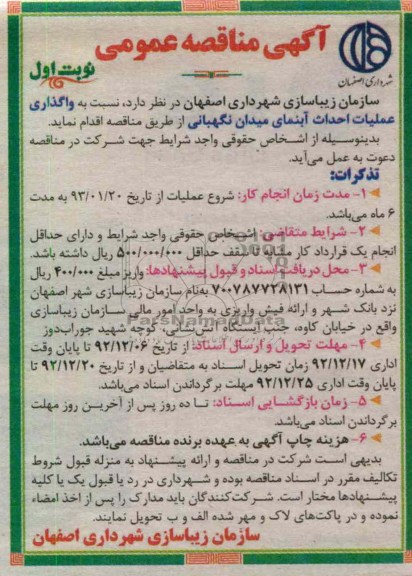 آگهی مناقصه عمومی
شهرداری اصفهان
نوبت اول
سازمان زیباسازی شهرداری اصفهان در نظر دارد، نسبت به واگذاری
عملیات احداث آبنمای میدان نگهبانی از طریق مناقصه اقدام نماید.
بدینوسیله از اشخاص حقوقی واجد شرایط جهت شرکت در مناقصه
دعوت به عمل می‌آید.
تذکرات:
۱- مدت زمان انجام کار: شروع عملیات از تاریخ ۹۳/۰۱/۲۰ به مدت
۶ ماه می‌باشد.
۲- شرایط متقاضی: اشخاص حقوقی واجد شرایط و دارای حداقل
انجام یک قرارداد کار مشابه تا سقف حداقل ۵۰۰/۰۰۰/۰۰۰ ریال داشته باشد.
۳- محل دریافت اسناد و قبول پیشنهادها: واریز مبلغ ۴۰۰/۰۰۰ ریال
به شماره حساب ۷۰۰۷۸۷۷۲۸۱۳۱ به‌نام سازمان زیباسازی شهر اصفهان
نزد بانک شهر و ارائه فیش واریزی به واحد امور مالی سازمان زیباسازی
واقع در خیابان کاوه، جنب ایستگاه آتش‌نشانی، کوچه شهید جوراب‌دوز
۴- مهلت تحویل و ارسال اسناد: از تاریخ ۹۲/۱۲/۰۶ تا پایان وقت
اداری ۹۲/۱۲/۱۷ زمان تحویل اسناد به متقاضیان و از تاریخ ۹۲/۱۲/۲۰ تا
پایان وقت اداری ۹۲/۱۲/۲۵ مهلت برگرداندن اسناد می‌باشد.
۵- زمان بازگشایی اسناد: تا ده روز پس از آخرین روز مهلت
برگرداندن اسناد می‌باشد.
۶- هزینه چاپ آگهی به عهده برنده مناقصه می‌باشد.
بدیهی است شرکت در مناقصه و ارائه پیشنهاد به منزله قبول شروط
تکالیف مقرر در اسناد مناقصه بوده و شهرداری در رد یا قبول یک یا کلیه
پیشنهادها مختار است. شرکت‌کنندگان باید مدارک را پس از اخذ امضاء
نموده و در پاکت‌های لاک و مهر شده الف و ب تحویل نمایند.
سازمان زیباسازی شهرداری اصفهان